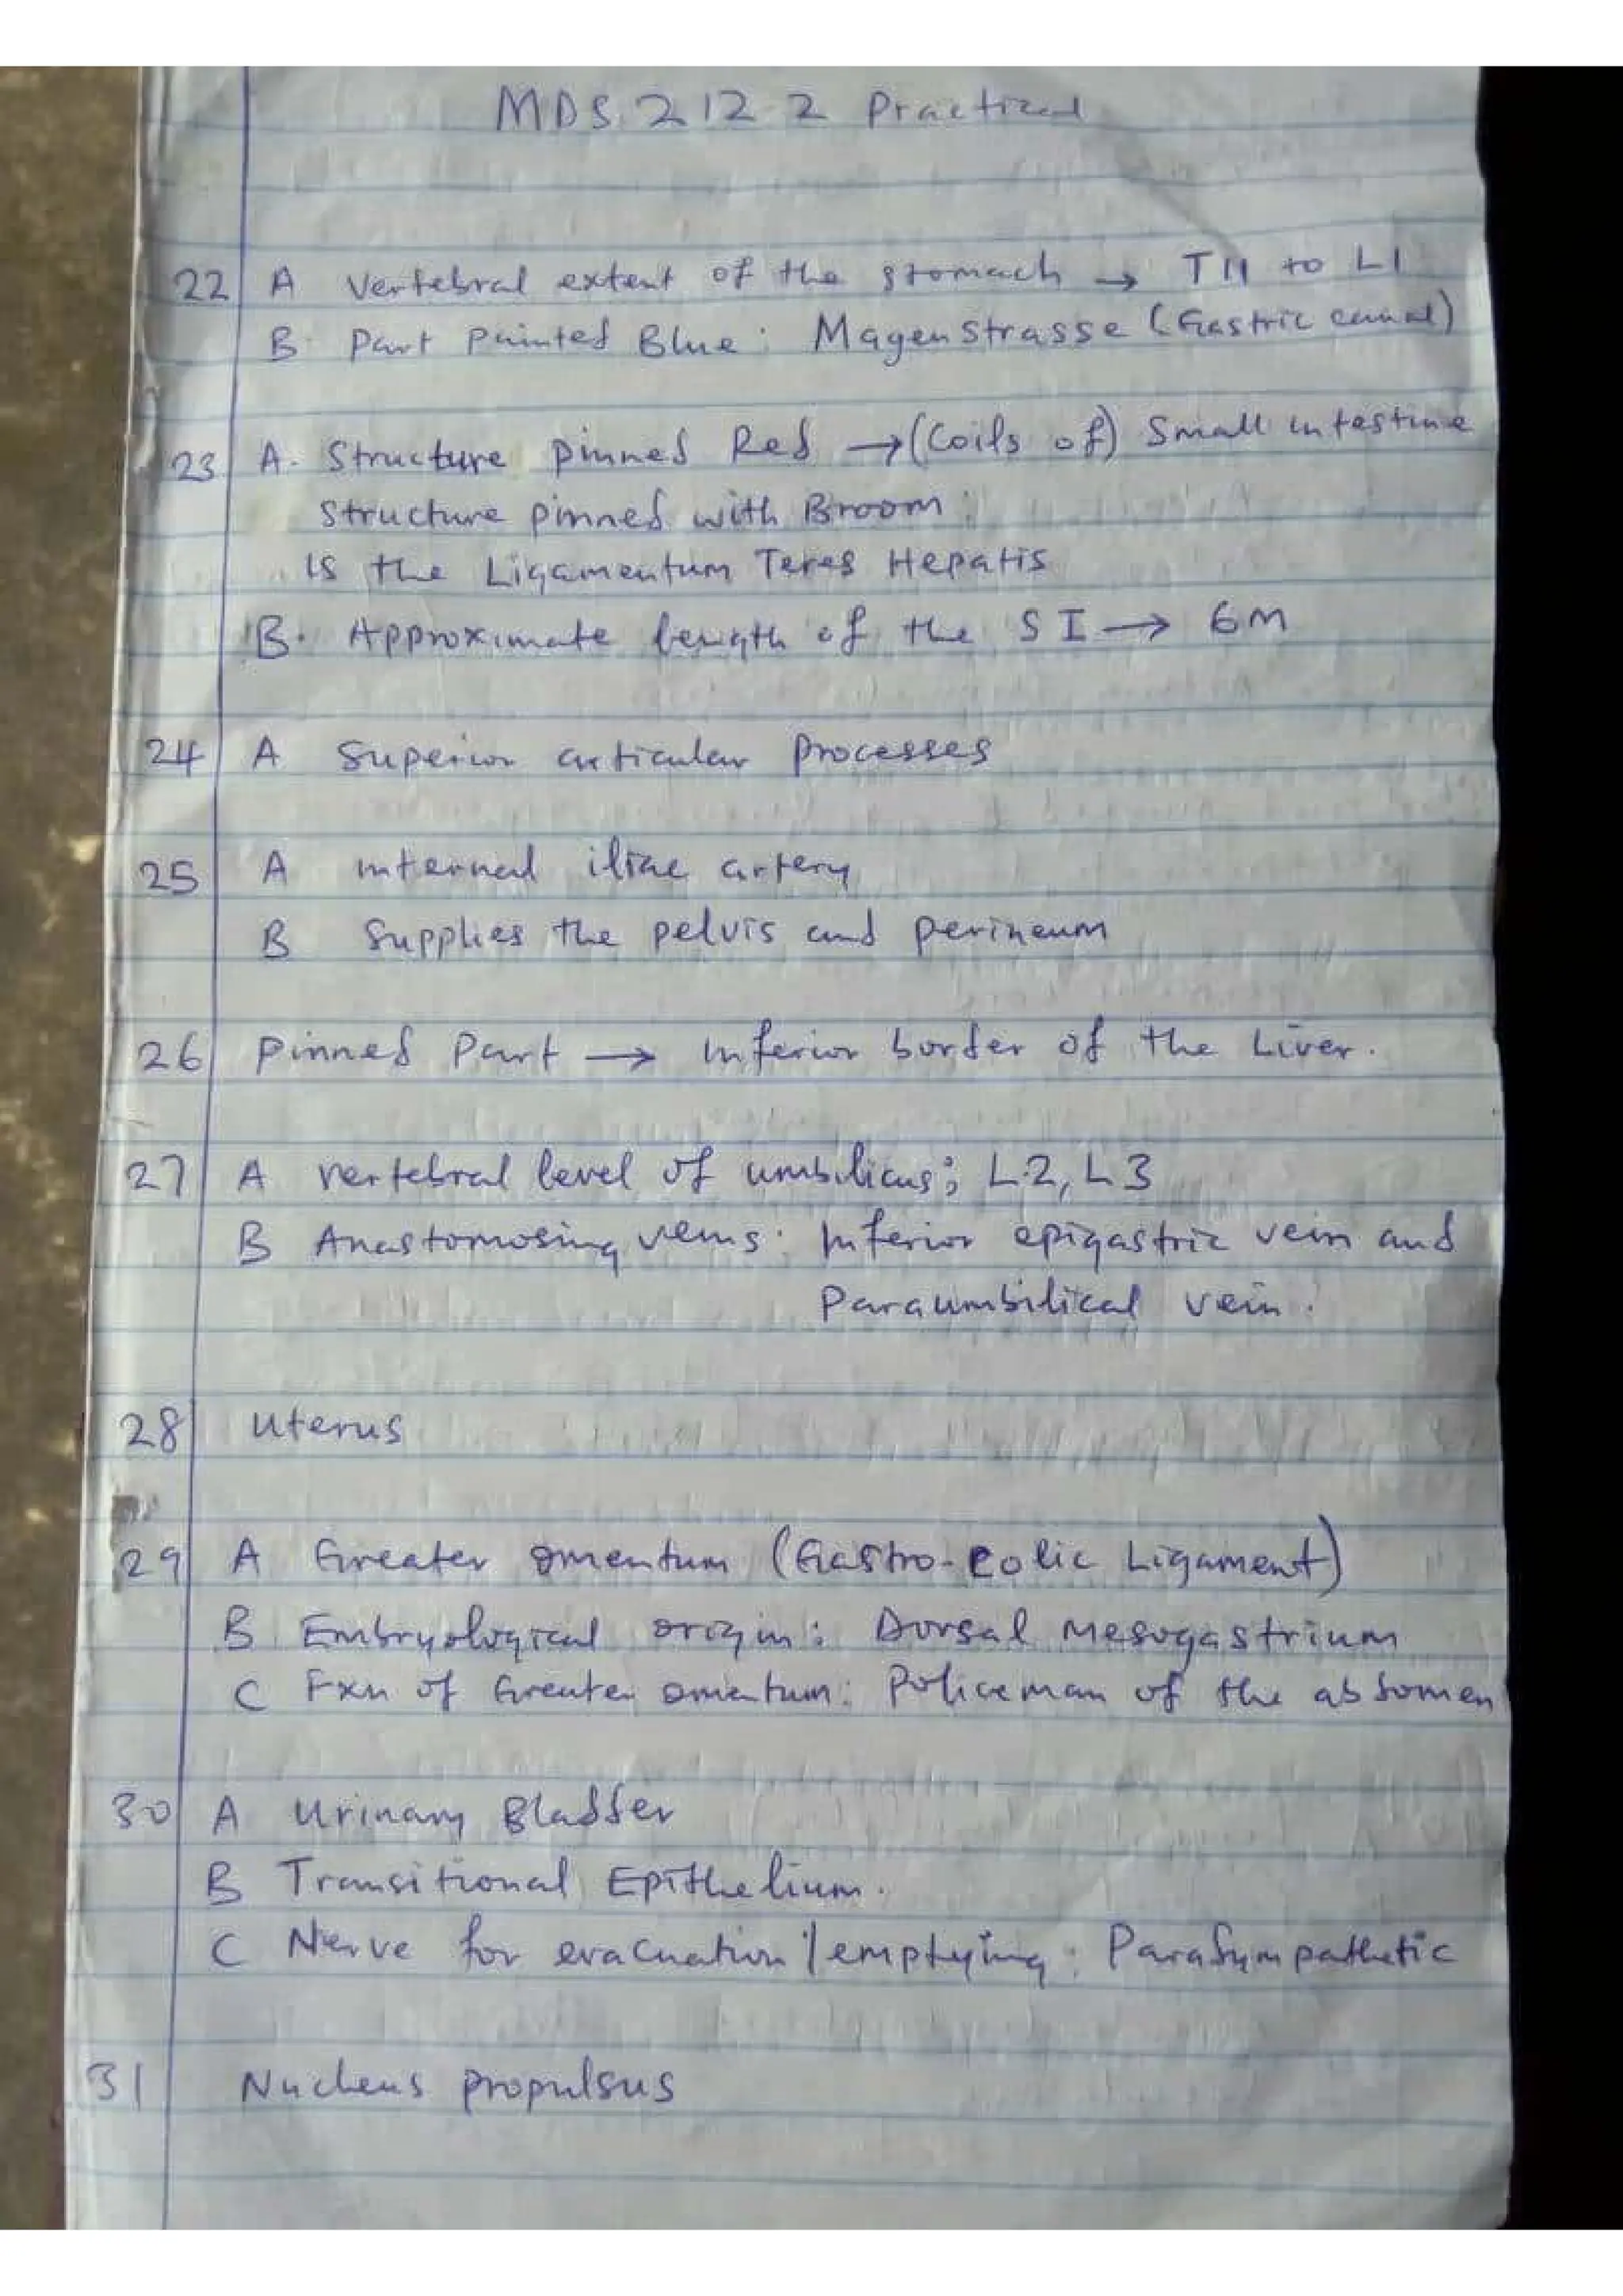 MDS 212 2 Practical
22 A Vertebral extent of the stomach → T11 to L1
B. Part Painted Blue: Magenstrasse (Gastric canal)
23 A. Structure pinned Red → (Coils of) Small intestine
Structure pinned with Broom:
is the Ligamentum Teres Hepatis
B. Approximate length of the SI → 6M
24 A Superior articular processes
25 A internal iliac artery
B Supplies the pelvis and perineum
26 pinned Part → Inferior border of the Liver.
27 A vertebral level of umbilicus; L2, L3
B Anastomosing veins: Inferior epigastric vein and
Paraumbilical vein.
28 Uterus
29 A Greater omentum (Gastro-colic Ligament)
B Embryological origin: Dorsal Mesogastrium
C Fxn of Greater omentum: Policeman of the abdomen
30 A Urinary Bladder
B Transitional Epithelium.
C Nerve for evacuation/emptying: Parasympathetic
31 Nucleus propulsus